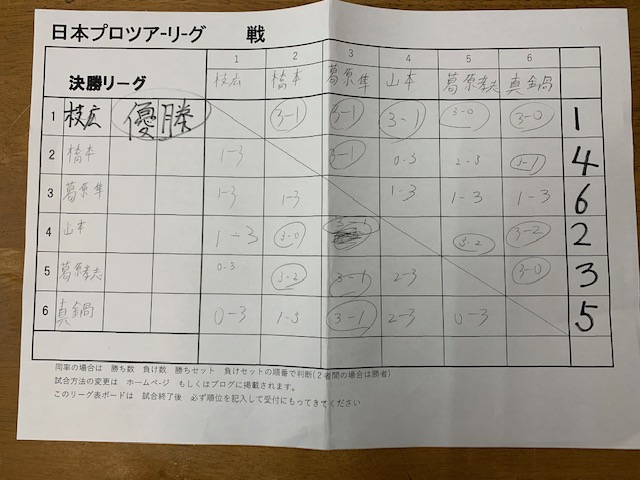 日本プロツアーリーグ 戦
1 2 3 4 5 6
決勝リーグ 枝広 橋本 葛原隼 山本 葛原孝夫 真鍋
1 枝広 優勝 3-1 3-1 3-1 3-0 3-0 1
2 橋本 1-3 3-1 0-3 2-3 3-1 4
3 葛原隼 1-3 1-3 1-3 1-3 1-3 6
4 山本 1-3 3-0 3-1 3-2 3-2 2
5 葛原孝夫 0-3 3-2 3-1 2-3 3-0 3
6 真鍋 0-3 1-3 3-1 2-3 0-3 5
同率の場合は 勝ち数 負け数 勝ちセット 負けセットの順番で判断(2者間の場合は勝者)
試合方法の変更は ホームページ もしくはブログに掲載されます。
このリーグ表ボードは 試合終了後 必ず順位を記入して受付にもってきてください